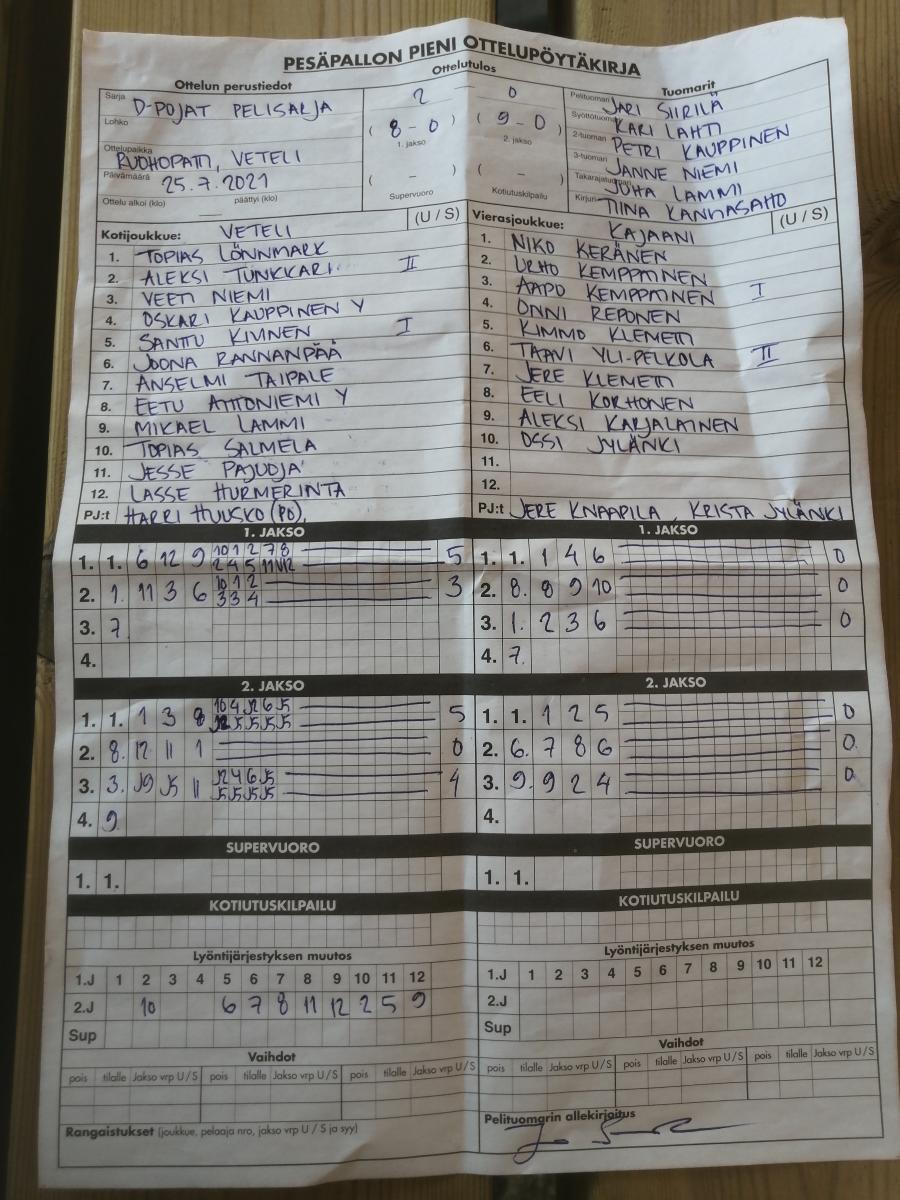 PESÄPALLON PIENI OTTELUPÖYTÄKIRJA
Ottelun perustiedot
Sarja D-POJAT PELISARJA
Lohko
Ottelupaikka RUOHOPATTI, VETELI
Päivämäärä 25.7.2021
Ottelu alkoi (klo) — päättyi (klo)
Ottelutulos
2 — 0
( 8 - 0 ) ( 9 - 0 )
1. jakso 2. jakso
( – ) ( – )
Supervuoro Kotiutuskilpailu
Tuomarit
Pelituomari JARI SIIRILÄ
Syöttötuomari KARI LAHTI
2-tuomari PETRI KAUPPINEN
3-tuomari JANNE NIEMI
Takarajatuomari JUHA LAMMI
Kirjuri TIINA KANNASAHO
Kotijoukkue: VETELI (U / S)
1. TOPIAS LÖNNMARK
2. ALEKSI TUNKKARI II
3. VEETI NIEMI
4. OSKARI KAUPPINEN Y
5. SANTTU KIVINEN I
6. JOONA RANNANPÄÄ
7. ANSELMI TAIPALE
8. EETU AITTONIEMI Y
9. MIKAEL LAMMI
10. TOPIAS SALMELA
11. JESSE PAJUOJA
12. LASSE HURMERINTA
PJ:t HARRI HUUSKO (PO),
Vierasjoukkue: KAJAANI (U / S)
1. NIKO KERÄNEN
2. URHO KEMPPAINEN
3. AAPO KEMPPAINEN I
4. ONNI REPONEN
5. KIMMO KLEMETTI
6. TAAVI YLI-PELKOLA II
7. JERE KLEMETTI
8. EELI KORHONEN
9. ALEKSI KARJALAINEN
10. OSSI JYLÄNKI
11.
12.
PJ:t JERE KNAAPILA, KRISTA JYLÄNKI
1. JAKSO
1. 1. 6 12 9 10 1 2 7 8 5
2 4 5 11 12
2. 1. 11 3 6 10 1 2 3
3 3 4
3. 7
4.
1. JAKSO
1. 1. 1 4 6 0
2. 8. 8 9 10 0
3. 1. 2 3 6 0
4. 7.
2. JAKSO
1. 1. 1 3 8 10 4 J2 6 J5 5
J2 J5 J5 J5 J5
2. 8. 12 11 1 0
3. 3. J9 J5 11 J2 4 6 J5 4
J5 J5 J5 J5
4. 9.
2. JAKSO
1. 1. 1 2 5 0
2. 6. 7 8 6 0.
3. 9. 9 2 4 0
4.
SUPERVUORO
1. 1.
SUPERVUORO
1. 1.
KOTIUTUSKILPAILU
KOTIUTUSKILPAILU
Lyöntijärjestyksen muutos
1.J 1 2 3 4 5 6 7 8 9 10 11 12
2.J 10 6 7 8 11 12 2 5 9
Sup
Lyöntijärjestyksen muutos
1.J 1 2 3 4 5 6 7 8 9 10 11 12
2.J
Sup
Vaihdot
pois tilalle Jakso vrp U / S pois tilalle Jakso vrp U / S pois tilalle Jakso vrp U / S
Vaihdot
pois tilalle Jakso vrp U / S pois tilalle Jakso vrp U / S pois tilalle Jakso vrp U / S
Rangaistukset (joukkue, pelaaja nro, jakso vrp U / S ja syy)
Pelituomarin allekirjoitus